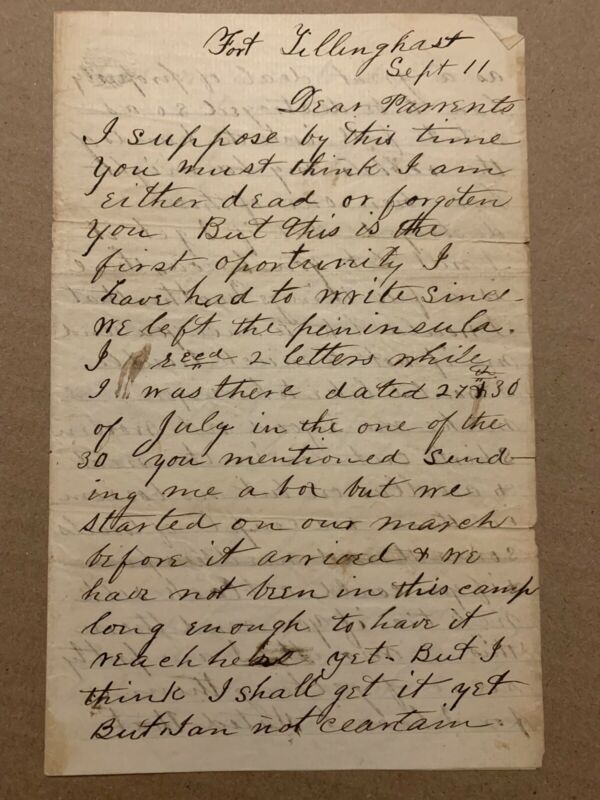 Fort Tillinghast
Sept 11
Dear Parrents
I suppose by this time
you must think I am
either dead or forgoten
you But this is the
first oportunity I
have had to write since
we left the peninsula.
I recd 2 letters while
I was there dated 27 & 30
of July in the one of the
30 you mentioned send-
ing me a box but we
started on our march
before it arrived & we
have not been in this camp
long enough to have it
reach here yet. But I
think I shall get it yet
But I am not ceartain.